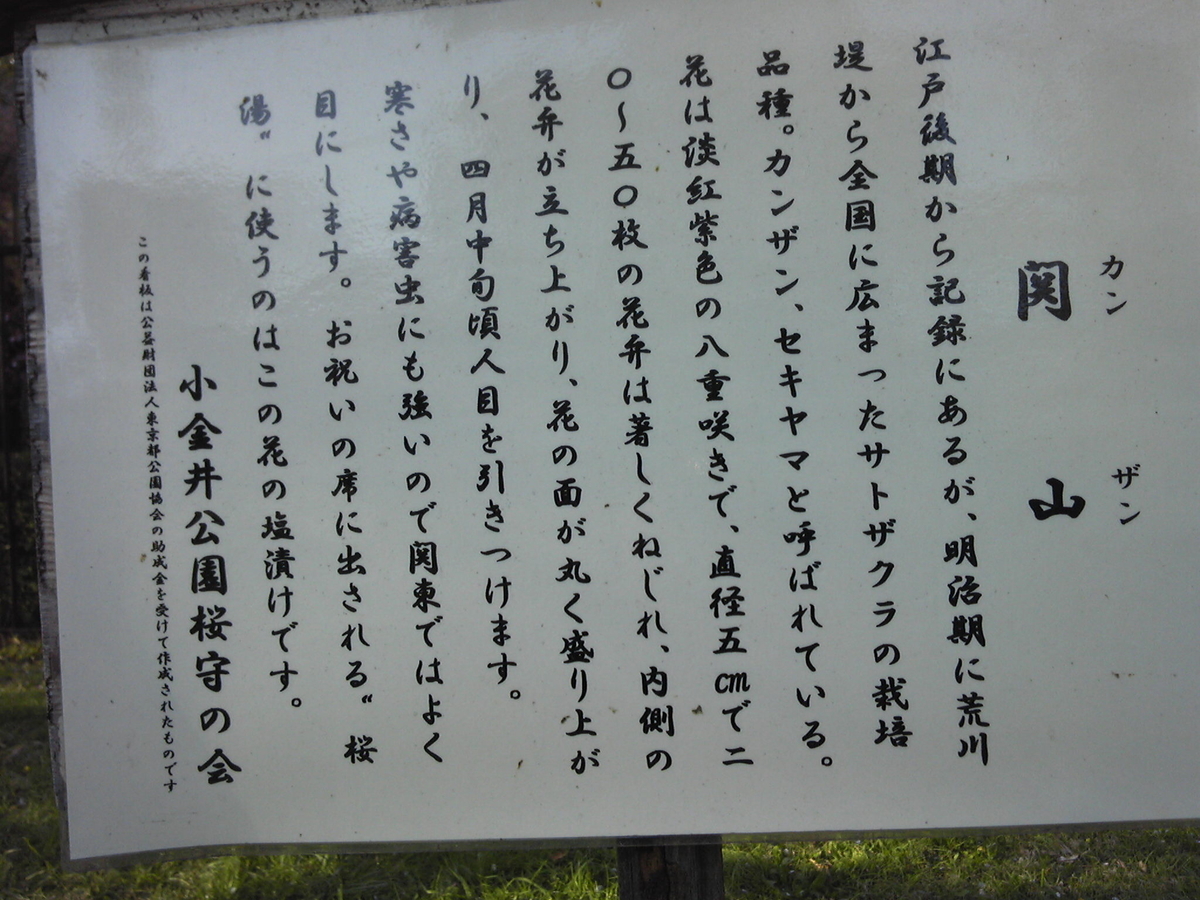 カン ザン
関 山
江戸後期から記録にあるが、明治期に荒川
堤から全国に広まったサトザクラの栽培
品種。カンザン、セキヤマと呼ばれている。
花は淡紅紫色の八重咲きで、直径五㎝で二
〇～五〇枚の花弁は著しくねじれ、内側の
花弁が立ち上がり、花の面が丸く盛り上が
り、四月中旬頃人目を引きつけます。
寒さや病害虫にも強いので関東ではよく
目にします。お祝いの席に出される〝桜
湯〟に使うのはこの花の塩漬けです。
小金井公園桜守の会
この看板は公益財団法人東京都公園協会の助成金を受けて作成されたものです